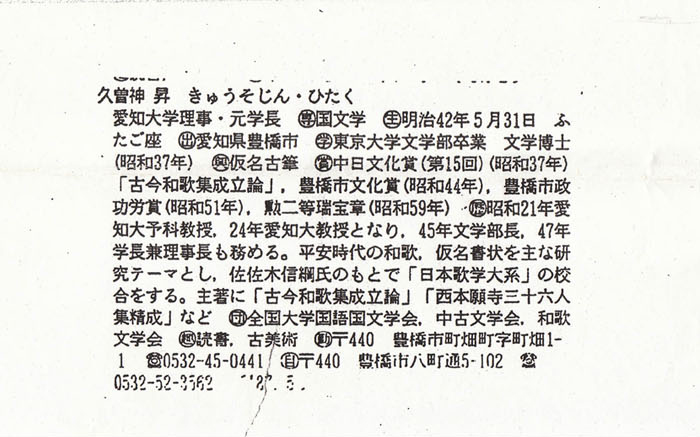 久曽神 昇 きゅうそじん・ひたく
愛知大学理事・元学長 ㊪国文学 ㊤明治42年5月31日 ふ
たご座 ㊦愛知県豊橋市 ㊫東京大学文学部卒業 文学博士
(昭和37年) 仮名古筆 中日文化賞(第15回)(昭和37年)
「古今和歌集成立論」,豊橋市文化賞(昭和44年),豊橋市政
功労賞(昭和51年),勲二等瑞宝章(昭和59年) 昭和21年愛
知大予科教授,24年愛知大教授となり,45年文学部長,47年
学長兼理事長も務める。平安時代の和歌,仮名書状を主な研
究テーマとし,佐佐木信綱氏のもとで「日本歌学大系」の校
合をする。主著に「古今和歌集成立論」「西本願寺三十六人
集精成」など 全国大学国語国文学会,中古文学会,和歌
文学会 読書,古美術 〒440 豊橋市町畑町字町畑1-
1 ☎0532-45-0441 〒440 豊橋市八町通5-102 ☎
0532-52-3562